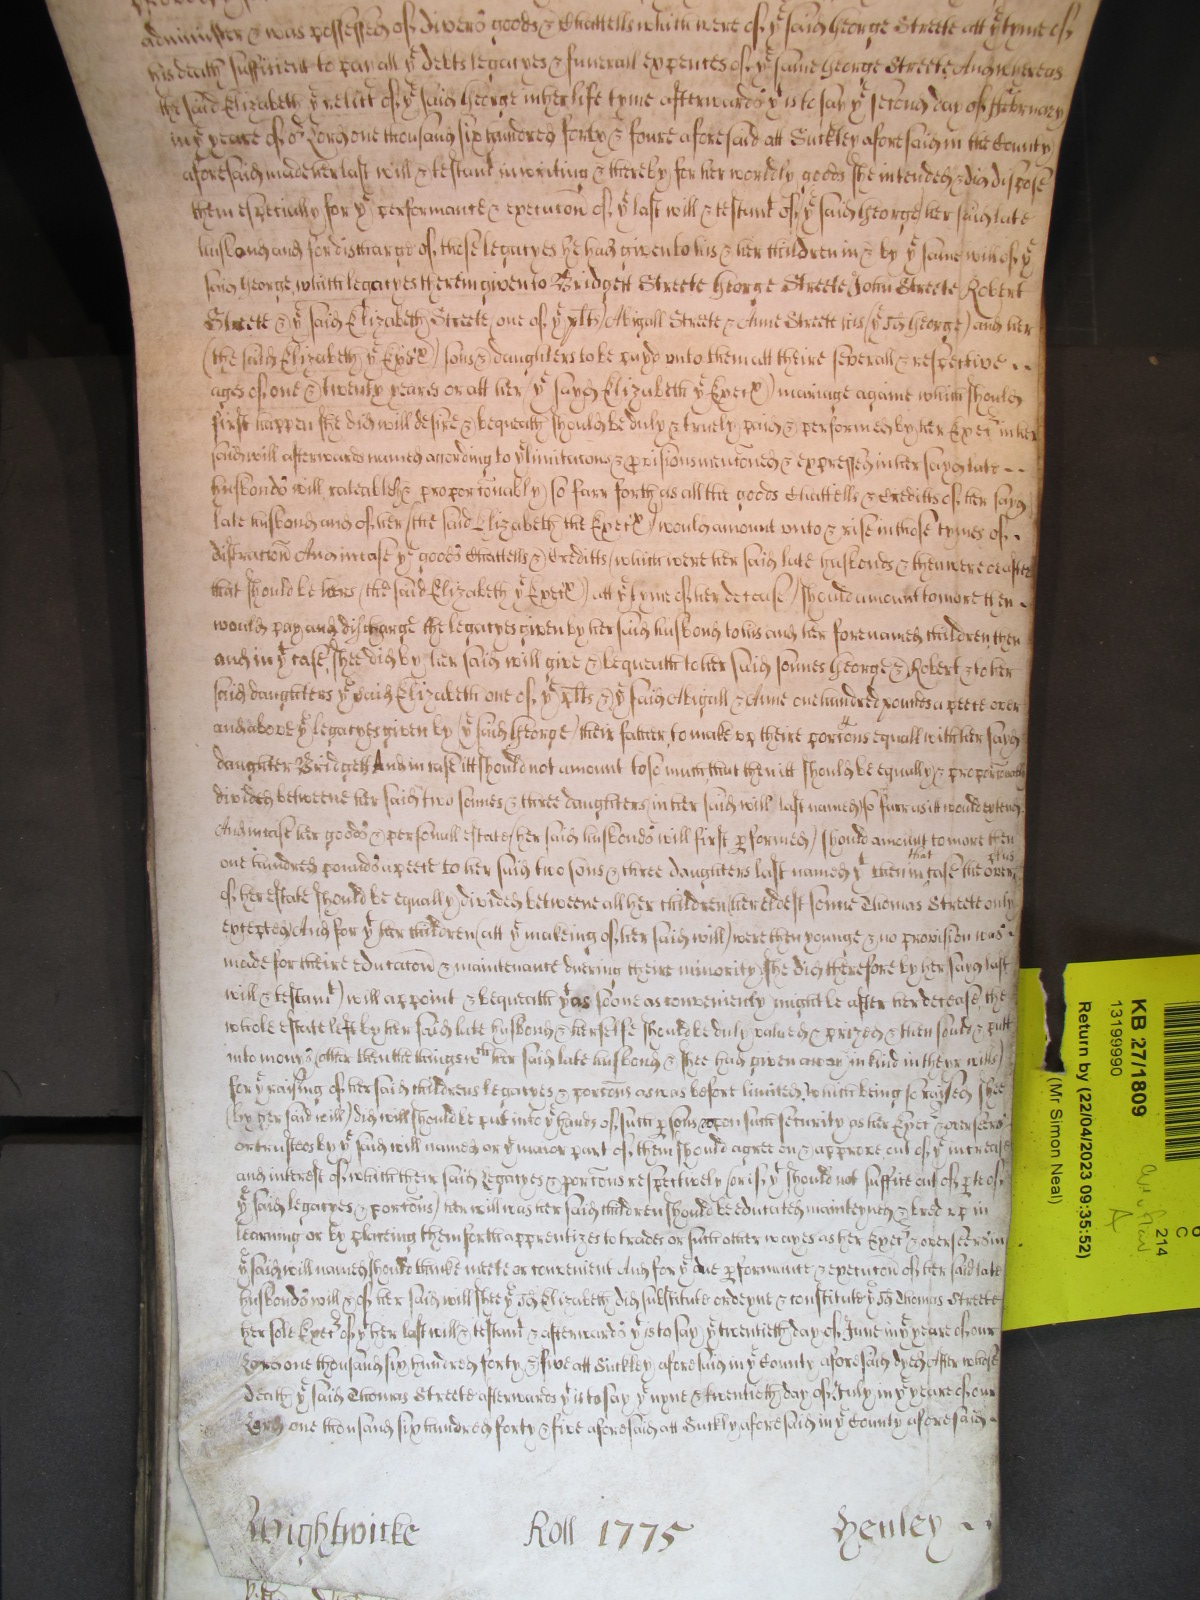 administer & was possessed of divers goods & Chattells which were of ye said George Streete att ye tyme of
his death sufficient to pay all ye debts legacyes & funerall expences of ye same George Streete And whereas
the said Elizabeth ye relict of ye said George in her life tyme afterwards yt is to say ye second day of February
in ye yeare of or Lord one thousand six hundred forty & foure aforesaid att Suckley aforesaid in the County
aforesaid made her last will & testamt in writing & thereby for her worldly goods she intended & did dispose
them especially for ye performance & execucon of ye last will & testamt of ye said George her said late
husband and for discharge of those legacyes he had given to his & her children in & by ye same will of ye
said George, which legacyes therein given to Bridgett Streete George Streete John Streete Robert
Streete & ye said Elizabeth Streete (one of ye plts) Abigall Streete & Anne Streete his (ye sd George) and her
(the said Elizabeth ye Exex) sons & daughters to be payd unto them att theire severall & respective
ages of one & twenty yeares or att her (ye sayd Elizabeth ye Execx) mariage againe which should
first happen she did will desire & bequeath should be duly & truely paid & performed by her Execr in her
said will afterwards named according to ye limitacons & provisions mencned & expressed in her sayd late
husbonds will, rateably & proporconably so farr forth as all the goods Chattells & Creditts of her sayd
late husbond and of her (the said Elizabeth the Execx) would amount unto & rise in those tymes of
distraccon And in case ye goods Chattells & Creditts which were her said late husbonds & then were or after
that should be hers (the said Elizabeth ye Execx) att ye tyme of her decease should amount to more then
would pay and discharge the legacyes given by her said husbond to his and her forenamed children then
and in yt case shee did by her said will give & bequeath to her said sonnes George & Robert & to her
said daughters ye said Elizabeth one of ye plts & ye said Abigall & Anne one hundred pounds a peece over
and above ye legacyes given by (ye said George) their father to make up theire porcons equall with her sayd
daughter Bridgett And in case itt should not amount to so much that then itt should be equally & proporconably
divided betweene her said two sonnes & three daughters in her said will last named so farr as itt would extend
And in case her goods & personall estate (her said husbonds will first pformed) should amount to more then
one hundred pounds a peece to her said two sons & three daughters last named yt then in that case the overplus
of her estate should be equally divided betweene all her children (her eldest sonne Thomas Streete only
excepted) And for yt her children (att ye makeing of her said will) were then younge & no provision was
made for theire educacon & maintenance dureing theire minority she did therefore by her sayd last
will & testamt will appoint & bequeath yt as soone as conveniently might be after her decease the
whole estate left by her said late husbond & herselfe should be duly valued & prized & then sould & putt
into monys (other then the things wch her said late husbond & shee had given away in kind in theyr wills)
for ye raising of her said childrens legacyes & porcons as was before limited, which being so raised shee
(by her said will) did will should be put into ye hands of such psons upon such security as her Execr & overseers
or trustees by ye said will named or ye maior part of them should agree on & approve out of ye increase
and interest of which their said legacyes & porcons respectively (or if yt should not suffice out of pte of
ye said legacyes & porcons) her will was her said children should be educated mainteyned & bred up in
learning or by placeing them forth apprentizes to trades or such other wayes as her Execr & overseers in
ye said will named should thinke meete or convenient And for ye due pformance & execucon of her said late
husbonds will & of her said will shee ye sd Elizabeth did substitute ordeyne & constitute ye sd Thomas Streete
her sole Execr of yt her last will & testamt & afterwards yt is to say ye twentieth day of June in ye yeare of our
Lord one thousand six hundred forty & five att Suckley aforesaid in ye County aforesaid dyed After whose
death ye said Thomas Streete afterwards yt is to say ye nyne & twentieth day of July in ye yeare of our
Lord one thousand six hundred forty & five aforesaid att Suckly aforesaid in ye County aforesaid
Wightwicke Roll 1775 Henley
KB 27/1809
13199990
Return by (22/04/2023 09:35:52)
(Mr Simon Neal)
214
C
A